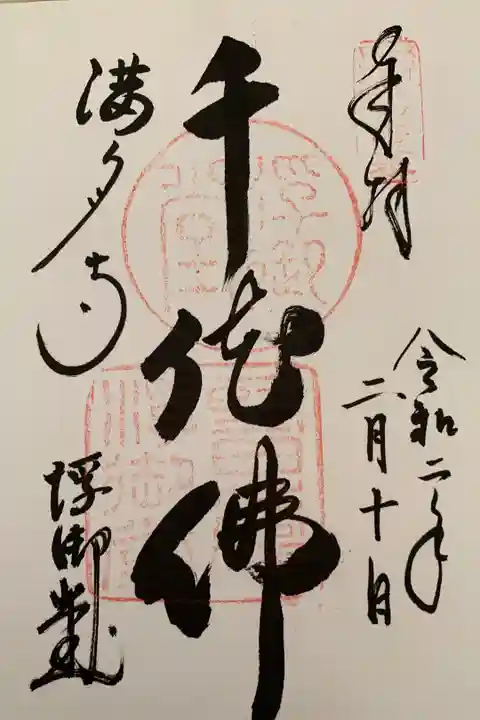 奉拝
令和二年
二月十日
千体佛
浮御堂
満月寺
浮御堂